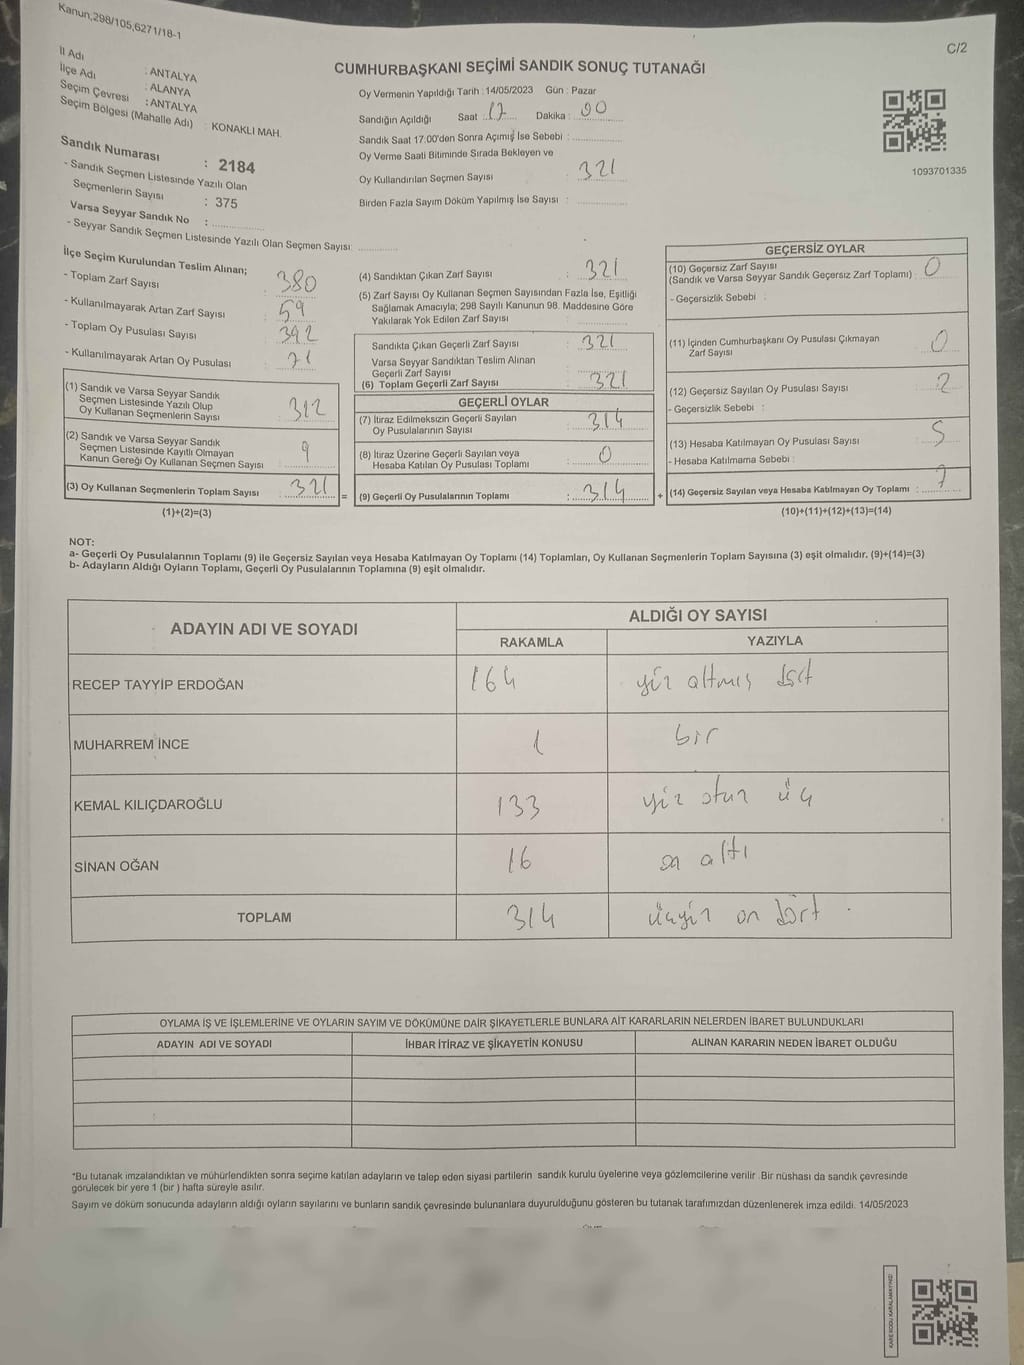 Kanun,298/105,6271/18-1
C/2
İl Adı : ANTALYA
İlçe Adı : ALANYA
Seçim Çevresi : ANTALYA
Seçim Bölgesi (Mahalle Adı) : KONAKLI MAH.
Sandık Numarası : 2184
- Sandık Seçmen Listesinde Yazılı Olan
Seçmenlerin Sayısı : 375
Varsa Seyyar Sandık No :
- Seyyar Sandık Seçmen Listesinde Yazılı Olan Seçmen Sayısı:
CUMHURBAŞKANI SEÇİMİ SANDIK SONUÇ TUTANAĞI
Oy Vermenin Yapıldığı Tarih : 14/05/2023 Gün : Pazar
Sandığın Açıldığı Saat : 17 Dakika : 00
Sandık Saat 17.00'den Sonra Açımış İse Sebebi :
Oy Verme Saati Bitiminde Sırada Bekleyen ve
Oy Kullandırılan Seçmen Sayısı : 321
Birden Fazla Sayım Döküm Yapılmış İse Sayısı :
1093701335
İlçe Seçim Kurulundan Teslim Alınan;
- Toplam Zarf Sayısı : 380
- Kullanılmayarak Artan Zarf Sayısı : 59
- Toplam Oy Pusulası Sayısı : 392
- Kullanılmayarak Artan Oy Pusulası : 71
(1) Sandık ve Varsa Seyyar Sandık
Seçmen Listesinde Yazılı Olup
Oy Kullanan Seçmenlerin Sayısı : 312
(2) Sandık ve Varsa Seyyar Sandık
Seçmen Listesinde Kayıtlı Olmayan
Kanun Gereği Oy Kullanan Seçmen Sayısı : 9
(3) Oy Kullanan Seçmenlerin Toplam Sayısı : 321 =
(1)+(2)=(3)
(4) Sandıktan Çıkan Zarf Sayısı : 321
(5) Zarf Sayısı Oy Kullanan Seçmen Sayısından Fazla İse, Eşitliği
Sağlamak Amacıyla; 298 Sayılı Kanunun 98. Maddesine Göre
Yakılarak Yok Edilen Zarf Sayısı :
Sandıkta Çıkan Geçerli Zarf Sayısı : 321
Varsa Seyyar Sandıktan Teslim Alınan
Geçerli Zarf Sayısı :
(6) Toplam Geçerli Zarf Sayısı : 321
GEÇERLİ OYLAR
(7) İtiraz Edilmeksizin Geçerli Sayılan
Oy Pusulalarının Sayısı : 314
(8) İtiraz Üzerine Geçerli Sayılan veya
Hesaba Katılan Oy Pusulası Toplamı : 0
(9) Geçerli Oy Pusulalarının Toplamı : 314 +
GEÇERSİZ OYLAR
(10) Geçersiz Zarf Sayısı
(Sandık ve Varsa Seyyar Sandık Geçersiz Zarf Toplamı) : 0
- Geçersizlik Sebebi :
(11) İçinden Cumhurbaşkanı Oy Pusulası Çıkmayan
Zarf Sayısı : 0
(12) Geçersiz Sayılan Oy Pusulası Sayısı : 2
- Geçersizlik Sebebi :
(13) Hesaba Katılmayan Oy Pusulası Sayısı : 5
- Hesaba Katılmama Sebebi :
(14) Geçersiz Sayılan veya Hesaba Katılmayan Oy Toplamı : 7
(10)+(11)+(12)+(13)=(14)
NOT:
a- Geçerli Oy Pusulalarının Toplamı (9) ile Geçersiz Sayılan veya Hesaba Katılmayan Oy Toplamı (14) Toplamları, Oy Kullanan Seçmenlerin Toplam Sayısına (3) eşit olmalıdır. (9)+(14)=(3)
b- Adayların Aldığı Oyların Toplamı, Geçerli Oy Pusulalarının Toplamına (9) eşit olmalıdır.
ADAYIN ADI VE SOYADI
ALDIĞI OY SAYISI
RAKAMLA YAZIYLA
RECEP TAYYİP ERDOĞAN 164 yüz altmış dört
MUHARREM İNCE 1 bir
KEMAL KILIÇDAROĞLU 133 yüz otuz üç
SİNAN OĞAN 16 on altı
TOPLAM 314 üçyüz on dört
OYLAMA İŞ VE İŞLEMLERİNE VE OYLARIN SAYIM VE DÖKÜMÜNE DAİR ŞİKAYETLERLE BUNLARA AİT KARARLARIN NELERDEN İBARET BULUNDUKLARI
ADAYIN ADI VE SOYADI İHBAR İTİRAZ VE ŞİKAYETİN KONUSU ALINAN KARARIN NEDEN İBARET OLDUĞU
*Bu tutanak imzalandıktan ve mühürlendikten sonra seçime katılan adayların ve talep eden siyasi partilerin sandık kurulu üyelerine veya gözlemcilerine verilir. Bir nüshası da sandık çevresinde
görülecek bir yere 1 (bir) hafta süreyle asılır.
Sayım ve döküm sonucunda adayların aldığı oyların sayılarını ve bunların sandık çevresinde bulunanlara duyurulduğunu gösteren bu tutanak tarafımızdan düzenlenerek imza edildi. 14/05/2023
KARE KODU KARALAMAYINIZ!